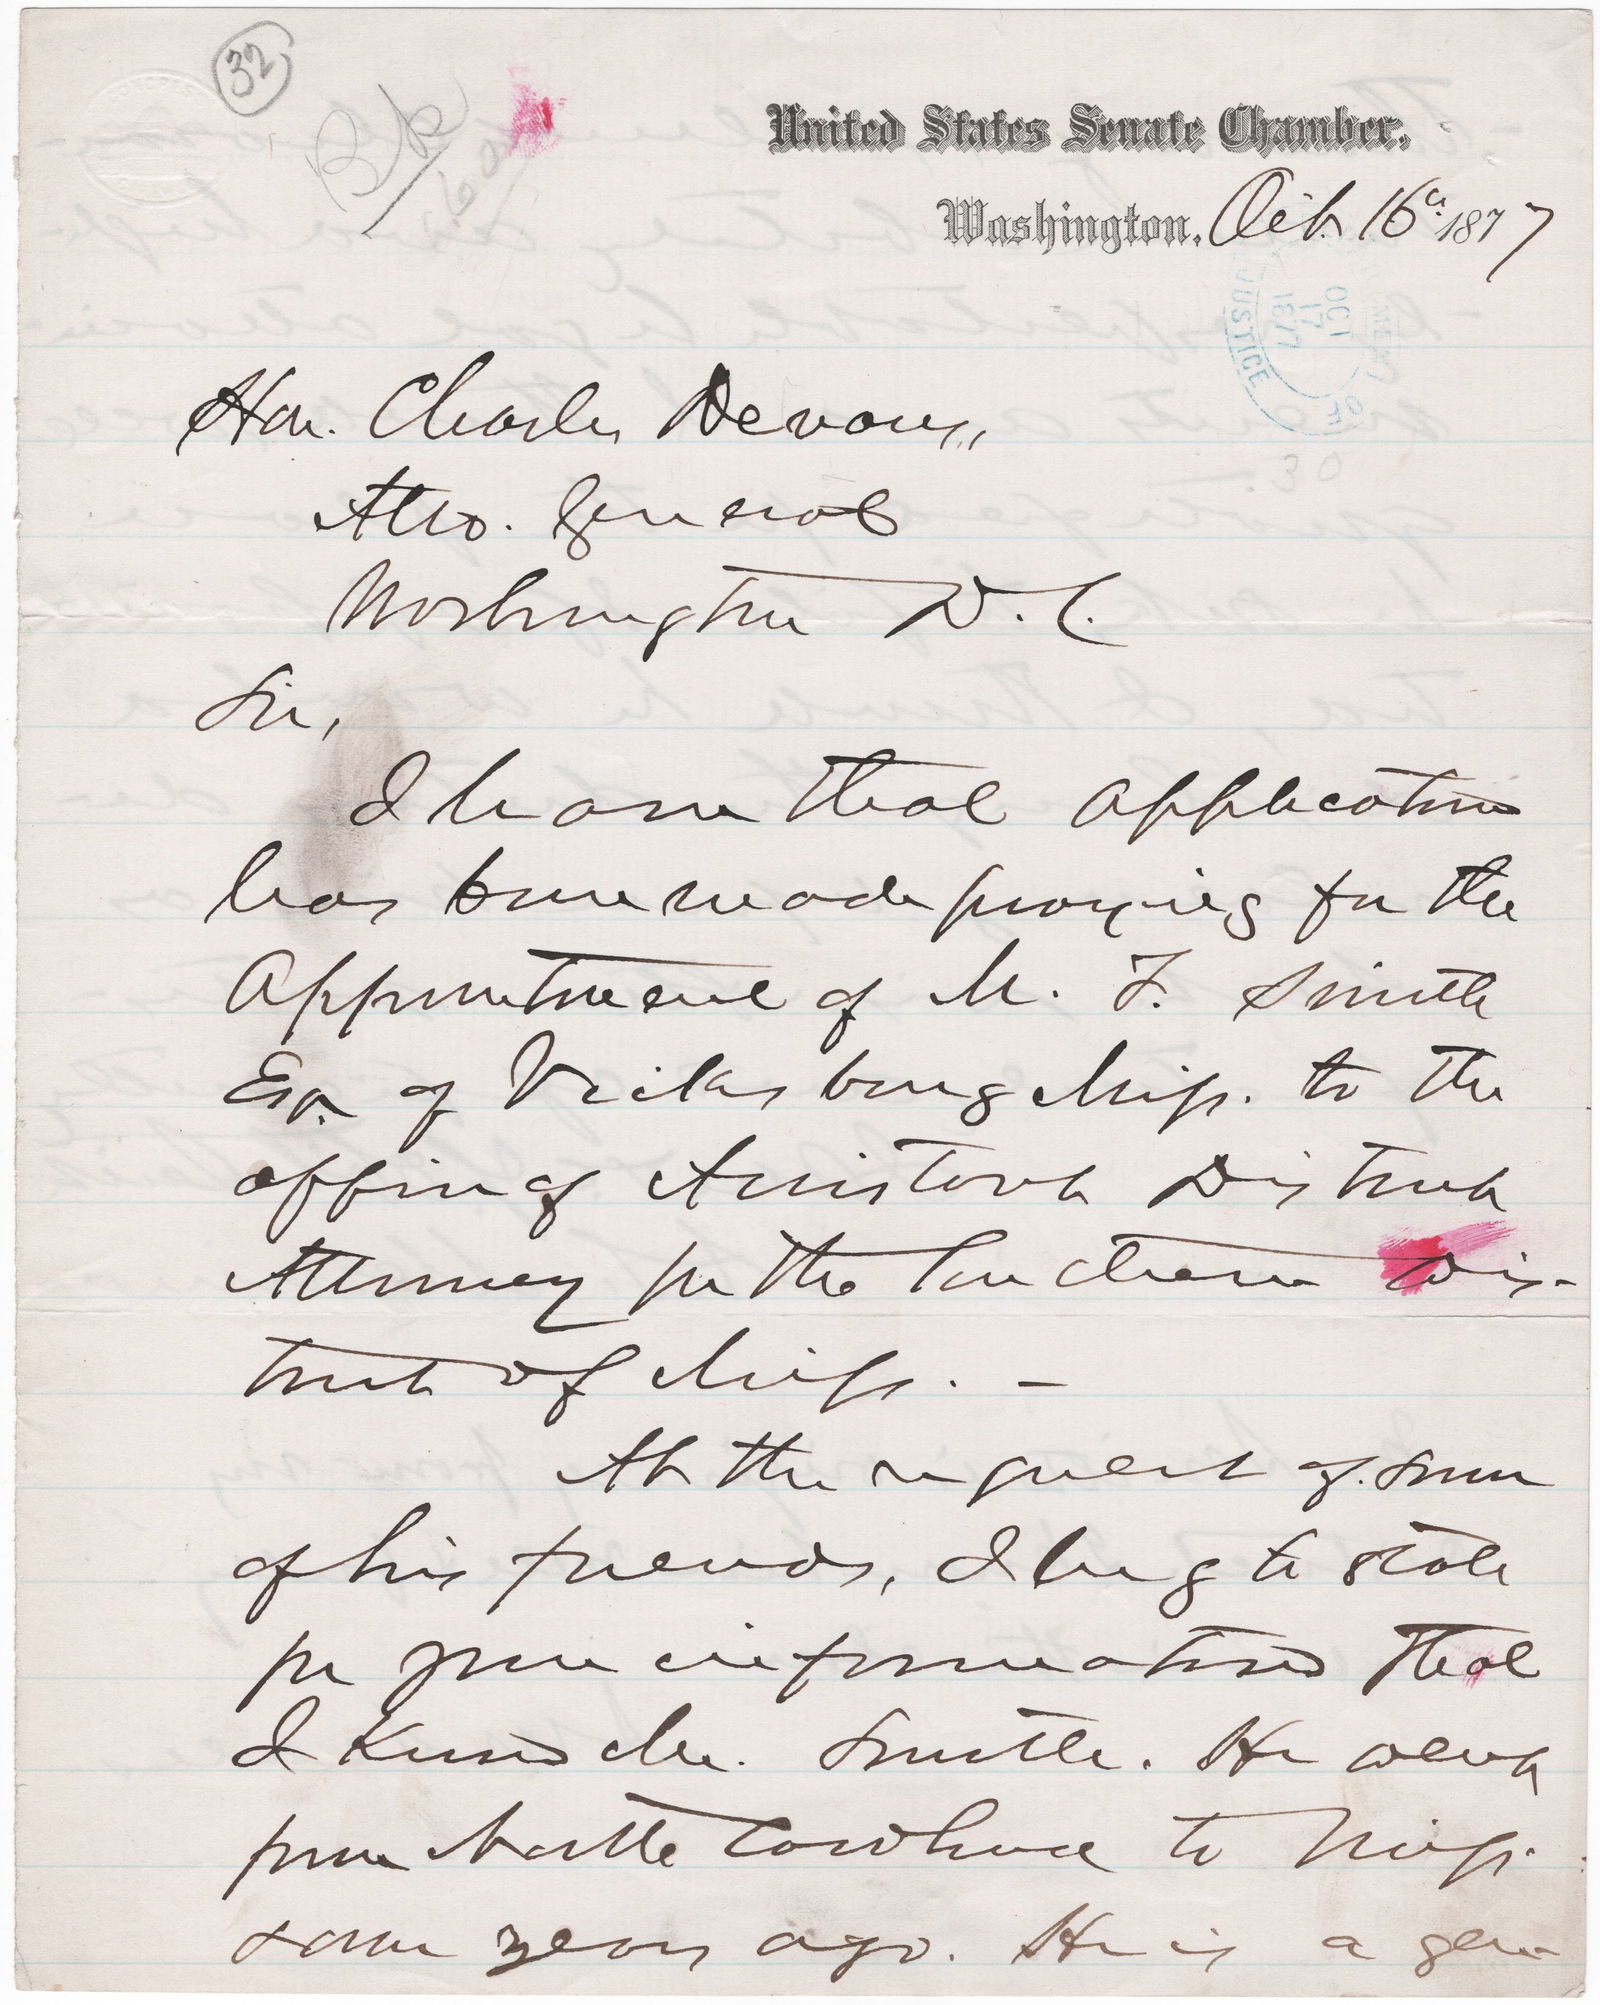 32
United States Senate Chamber.
Washington, Oct. 16th 1877
DEPARTMENT OF JUSTICE
OCT
17
1877
30
Hon. Charles Devans,
Atto. General
Washington D.C.
Sir,
I learn that application
has been made praying for the
appointment of M. F. Smith
Esq. of Vicksburg Miss. to the
office of Assistant District
Attorney for the Southern Dis-
trict of Miss. —
At the request of some
of his friends, I beg to state
for your information that
I know Mr. Smith. He went
from North Carolina to Miss.
some years ago. He is a gen-